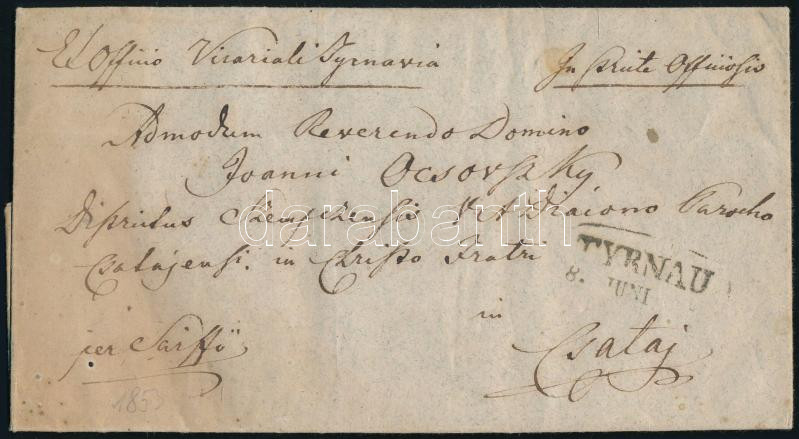 Ex Officio Vicariali Tyrnavia
In Spirite Officiosis
Admodum Reverendo Domino
Joanni Ocsovszky
Districtus V. A. Diacono Parocho
Csatajensi. in Christo Fratri
TYRNAU
8. JUNI
per Sarffö
in
Csataj
1853
darabanth